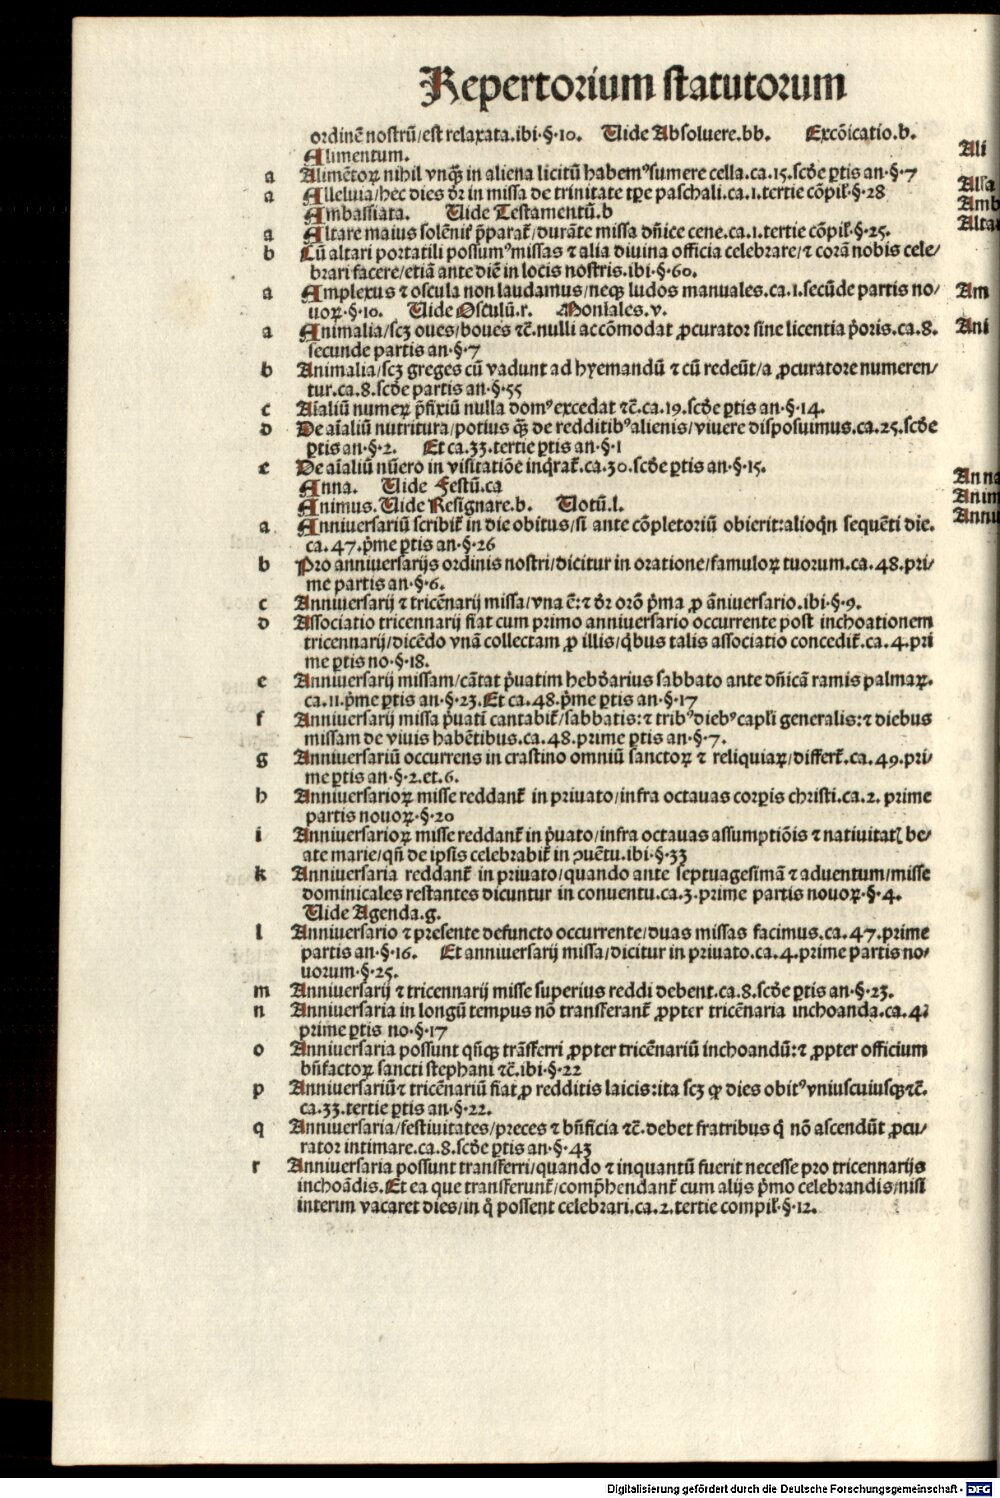 Repertorium statutorum
ordinē nostrū/est relaxata.ibi·§·10. Vide Absoluere.bb. Excōicatio.b.
Alimentum.
a Alimētoꝝ nihil vnqꝫ in aliena licitū habemꝰ sumere cella.ca.15.scđe ꝑtis an·§·7
a Alleluia/hec dies dr̄ in missa de trinitate tꝑe paschali.ca.1.tertie cōpil·§·28
Ambassiata. Vide Testamentū.b
a Altare maius solēnit̄ p̄parat̄/durāte missa dn̄ice cene.ca.1.tertie cōpil·§·25.
b Cū altari portatili possumꝰ missas ⁊ alia diuina officia celebrare/⁊ corā nobis cele/
brari facere/etiā ante diē in locis nostris.ibi·§·60.
a Amplexus ⁊ oscula non laudamus/neqꝫ ludos manuales.ca.1.secūde partis no/
uoꝝ·§·10. Vide Osculū.r. Moniales.v.
a Animalia/scꝫ oues/boues ⁊c̄.nulli accōmodat ꝓcurator sine licentia p̄oris.ca.8.
secunde partis an·§·7
b Animalia/scꝫ greges cū vadunt ad hyemandū ⁊ cū redeūt/a ꝓcuratore numeren/
tur.ca.8.scđe partis an·§·55
c Aīaliū numeꝝ p̄fixiū nulla domꝰ excedat ⁊c̄.ca.19.scđe ꝑtis an·§·14.
d De aīaliū nutritura/potius qꝫ de redditibꝰ alienis/viuere disposuimus.ca.25.scđe
ꝑtis an·§·2. Et ca.33.tertie ꝑtis an·§·1
e De aīaliū nūero in visitatiōe inqrat̄.ca.30.scđe ꝑtis an·§·15.
Anna. Vide Festū.ca
Animus. Vide Resignare.b. Votū.l.
a Anniuersariū scribit̄ in die obitus/si ante cōpletoriū obierit:alioqn̄ sequēti die.
ca.47.p̄me ꝑtis an·§·26
b Pro anniuersarijs ordinis nostri/dicitur in oratione/famuloꝝ tuorum.ca.48.pri/
me partis an·§·6.
c Anniuersarij ⁊ tricēnarij missa/vna ē:⁊ dr̄ orō p̄ma ꝓ āniuersario.ibi·§·9.
d Associatio tricennarij fiat cum primo anniuersario occurrente post inchoationem
tricennarij/dicēdo vnā collectam ꝓ illis/qbus talis associatio concedit̄.ca.4.pri
me ꝑtis no·§·18.
e Anniuersarij missam/cātat p̄uatim hebđarius sabbato ante dn̄icā ramis palmaꝝ.
ca.11.p̄me ꝑtis an·§·23. Et ca.48.p̄me ꝑtis an·§·17
f Anniuersarij missa p̄uatī cantabit̄/sabbatis:⁊ tribꝰ diebꝰ capl̄i generalis:⁊ diebus
missam de viuis habētibus.ca.48.prime ꝑtis an·§·7.
g Anniuersariū occurrens in crastino omniū sanctoꝝ ⁊ reliquiaꝝ/differt̄.ca.49.pri/
me ꝑtis an·§·2.et.6.
h Anniuersarioꝝ misse reddant̄ in priuato/infra octauas corꝑis christi.ca.2. prime
partis nouoꝝ·§·20
i Anniuersarioꝝ misse reddant̄ in p̄uato/infra octauas assumptiōis ⁊ natiuitatꝭ be/
ate marie/qn̄ de ipsis celebrabit̄ in ↄuētu.ibi·§·33
k Anniuersaria reddant̄ in priuato/quando ante septuagesimā ⁊ aduentum/misse
dominicales restantes dicuntur in conuentu.ca.3.prime partis nouoꝝ·§·4.
Vide Agenda.g.
l Anniuersario ⁊ presente defuncto occurrente/duas missas facimus.ca.47.prime
partis an·§·16. Et anniuersarij missa/dicitur in priuato.ca.4.prime partis no/
uorum·§·25.
m Anniuersarij ⁊ tricennarij misse superius reddi debent.ca.8.scđe ꝑtis an·§·23.
n Anniuersaria in longū tempus nō transferant̄ ꝓpter tricēnaria inchoanda.ca.4.
prime ꝑtis no·§·17
o Anniuersaria possunt qn̄qꝫ trāsferri ꝓpter tricēnariū inchoandū:⁊ ꝓpter officium
bn̄factoꝝ sancti stephani ⁊c̄.ibi·§·22
p Anniuersariū ⁊ tricēnariū fiat ꝓ redditis laicis:ita scꝫ ꝙ dies obitꝰ vniuscuiusqꝫ ⁊c̄.
ca.33.tertie ꝑtis an·§·22.
q Anniuersaria/festiuitates/preces ⁊ bn̄ficia ⁊c̄.debet fratribus q̄ nō ascendūt ꝓcu/
rator intimare.ca.8.scđe ꝑtis an·§·43
r Anniuersaria possunt transferri/quando ⁊ inquantū fuerit necesse pro tricennarijs
inchoādis. Et ea que transferunt̄/comp̄hendant̄ cum alijs p̄mo celebrandis/nisi
interim vacaret dies/in q̄ possent celebrari.ca.2.tertie compil·§·12.
Ali
Alla
Amb
Altar
Am
Ani
Anna
Anim
Annu
Digitalisierung gefördert durch die Deutsche Forschungsgemeinschaft - DFG